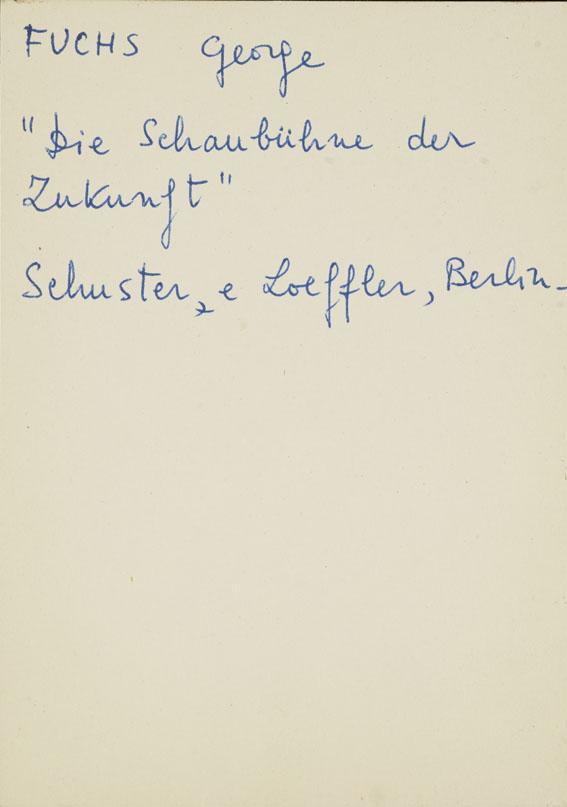 FUCHS George
"Die Schaubühne der
Zukunft"
Schuster, e Loeffler, Berlin-